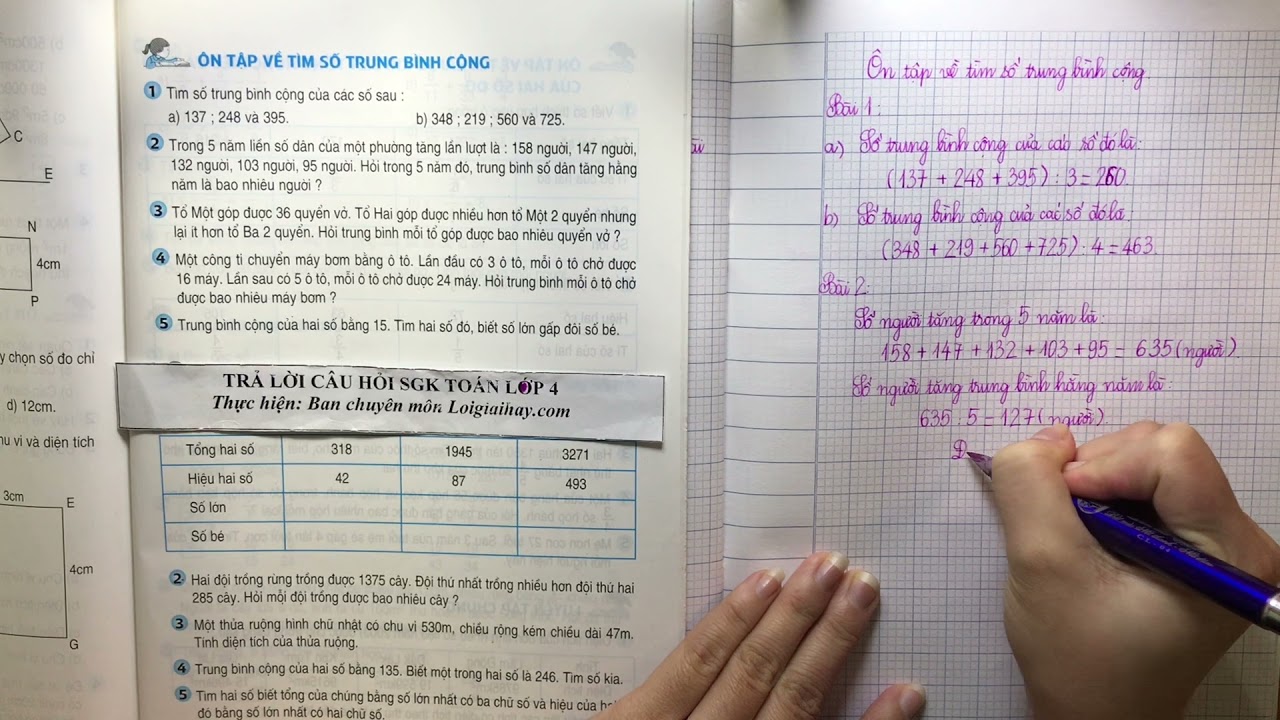 C
E
N
4cm
P
y chọn số đo chỉ
d) 12cm.
hu vi và diện tích
3cm
E
4cm
G
ÔN TẬP VỀ TÌM SỐ TRUNG BÌNH CỘNG
1 Tìm số trung bình cộng của các số sau :
a) 137 ; 248 và 395. b) 348 ; 219 ; 560 và 725.
2 Trong 5 năm liền số dân của một phường tăng lần lượt là : 158 người, 147 người,
132 người, 103 người, 95 người. Hỏi trong 5 năm đó, trung bình số dân tăng hằng
năm là bao nhiêu người ?
3 Tổ Một góp được 36 quyển vở. Tổ Hai góp được nhiều hơn tổ Một 2 quyển nhưng
lại ít hơn tổ Ba 2 quyển. Hỏi trung bình mỗi tổ góp được bao nhiêu quyển vở ?
4 Một công ti chuyển máy bơm bằng ô tô. Lần đầu có 3 ô tô, mỗi ô tô chở được
16 máy. Lần sau có 5 ô tô, mỗi ô tô chở được 24 máy. Hỏi trung bình mỗi ô tô chở
được bao nhiêu máy bơm ?
5 Trung bình cộng của hai số bằng 15. Tìm hai số đó, biết số lớn gấp đôi số bé.
TRẢ LỜI CÂU HỎI SGK TOÁN LỚP 4
Thực hiện: Ban chuyên môn Loigiaihay.com
Tổng hai số 318 1945 3271
Hiệu hai số 42 87 493
Số lớn
Số bé
2 Hai đội trồng rừng trồng được 1375 cây. Đội thứ nhất trồng nhiều hơn đội thứ hai
285 cây. Hỏi mỗi đội trồng được bao nhiêu cây ?
3 Một thửa ruộng hình chữ nhật có chu vi 530m, chiều rộng kém chiều dài 47m.
Tính diện tích của thửa ruộng.
4 Trung bình cộng của hai số bằng 135. Biết một trong hai số là 246. Tìm số kia.
5 Tìm hai số biết tổng của chúng bằng số lớn nhất có ba chữ số và hiệu của
đó bằng số lớn nhất có hai chữ số.
Ôn tập về tìm số trung bình cộng.
Bài 1:
a) Số trung bình cộng của các số đó là:
(137 + 248 + 395) : 3 = 260.
b) Số trung bình cộng của các số đó là:
(348 + 219 + 560 + 725) : 4 = 463.
Bài 2:
Số người tăng trong 5 năm là:
158 + 147 + 132 + 103 + 95 = 635 (người)
Số người tăng trung bình hằng năm là:
635 : 5 = 127 (người).
Đ